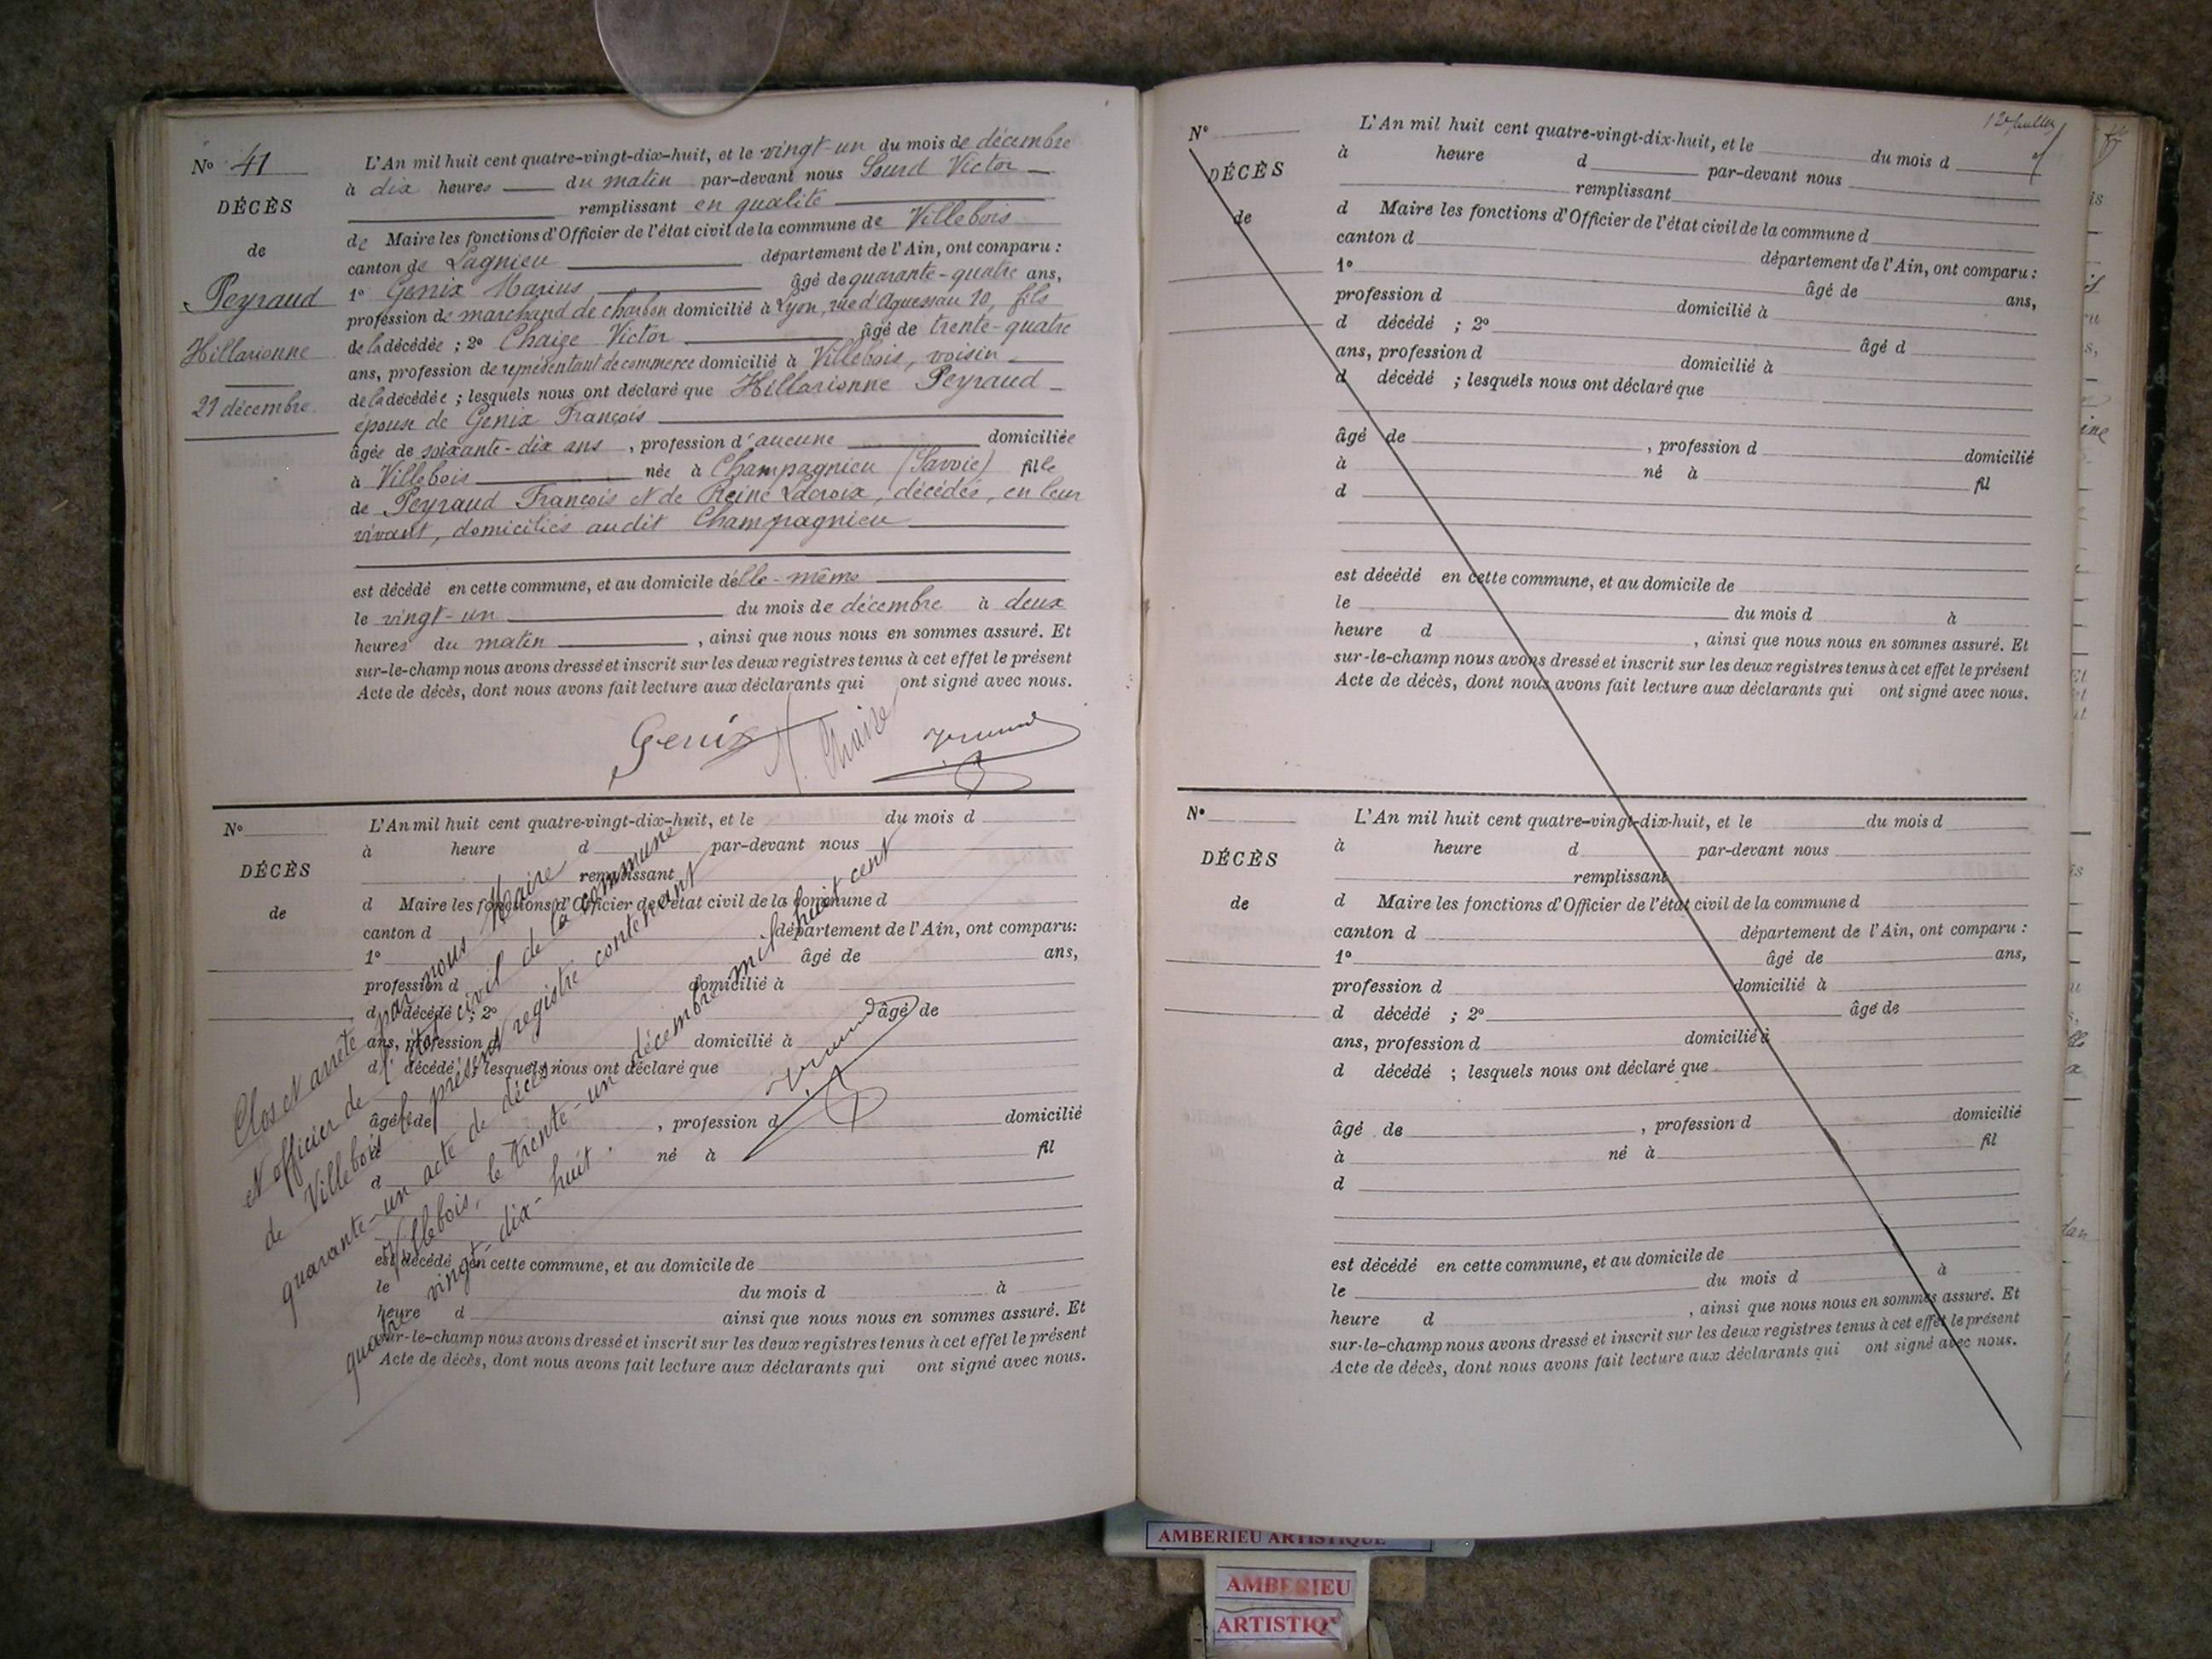 N° 41
DÉCÈS
de
Peyraud
Hillarionne
21 décembre
L'An mil huit cent quatre-vingt-dix-huit, et le vingt-un du mois de décembre
à dix heures du matin par-devant nous Sourd Victor
remplissant en qualité
de Maire les fonctions d'Officier de l'état civil de la commune de Villebois
canton de Lagnieu département de l'Ain, ont comparu :
1° Genix Marius âgé de quarante-quatre ans,
profession de marchand de charbon domicilié à Lyon, rue d'Aguesseau 10, fils
de la décédée ; 2° Chaize Victor âgé de trente-quatre
ans, profession de représentant de commerce domicilié à Villebois, voisin
de la décédée ; lesquels nous ont déclaré que Hillarionne Peyraud
épouse de Genix François
âgée de soixante-dix ans, profession d'aucune domiciliée
à Villebois née à Champagnieu (Savoie) fille
de Peyraud François et de Reine Lacroix, décédés, en leur
vivant, domiciliés audit Champagnieu
est décédé en cette commune, et au domicile d'elle-même
le vingt-un du mois de décembre à deux
heures du matin, ainsi que nous nous en sommes assuré. Et
sur-le-champ nous avons dressé et inscrit sur les deux registres tenus à cet effet le présent
Acte de décès, dont nous avons fait lecture aux déclarants qui ont signé avec nous.
Genix V. Chaize
N°
DÉCÈS
de
L'An mil huit cent quatre-vingt-dix-huit, et le du mois d
à heure d par-devant nous
remplissant
d Maire les fonctions d'Officier de l'état civil de la commune d
canton d département de l'Ain, ont comparu:
1° âgé de ans,
profession d domicilié à
d décédé ; 2° âgé de
ans, profession d domicilié à
d décédé ; lesquels nous ont déclaré que
âgé de , profession d domicilié
à né à fil
d
est décédé en cette commune, et au domicile de
le du mois d à
heure d ainsi que nous nous en sommes assuré. Et
sur-le-champ nous avons dressé et inscrit sur les deux registres tenus à cet effet le présent
Acte de décès, dont nous avons fait lecture aux déclarants qui ont signé avec nous.
Clos et arrêté par nous Maire
et officier de l'état civil de la commune
de Villebois le présent registre contenant
quarante-un acte de décès
Villebois, le trente-un décembre mil huit cent
quatre vingt-dix-huit.
N°
DÉCÈS
de
L'An mil huit cent quatre-vingt-dix-huit, et le du mois d
à heure d par-devant nous
remplissant
d Maire les fonctions d'Officier de l'état civil de la commune d
canton d département de l'Ain, ont comparu :
1° âgé de ans,
profession d domicilié à
d décédé ; 2° âgé d
ans, profession d domicilié à
d décédé ; lesquels nous ont déclaré que
âgé de , profession d domicilié
à né à fil
d
est décédé en cette commune, et au domicile de
le du mois d à
heure d , ainsi que nous nous en sommes assuré. Et
sur-le-champ nous avons dressé et inscrit sur les deux registres tenus à cet effet le présent
Acte de décès, dont nous avons fait lecture aux déclarants qui ont signé avec nous.
N°
DÉCÈS
de
L'An mil huit cent quatre-vingt-dix-huit, et le du mois d
à heure d par-devant nous
remplissant
d Maire les fonctions d'Officier de l'état civil de la commune d
canton d département de l'Ain, ont comparu :
1° âgé de ans,
profession d domicilié à
d décédé ; 2° âgé de
ans, profession d domicilié à
d décédé ; lesquels nous ont déclaré que
âgé de , profession d domicilié
à né à fil
d
est décédé en cette commune, et au domicile de
le du mois d à
heure d , ainsi que nous nous en sommes assuré. Et
sur-le-champ nous avons dressé et inscrit sur les deux registres tenus à cet effet le présent
Acte de décès, dont nous avons fait lecture aux déclarants qui ont signé avec nous.
AMBERIEU ARTISTIQUE
AMBERIEU
ARTISTIQ